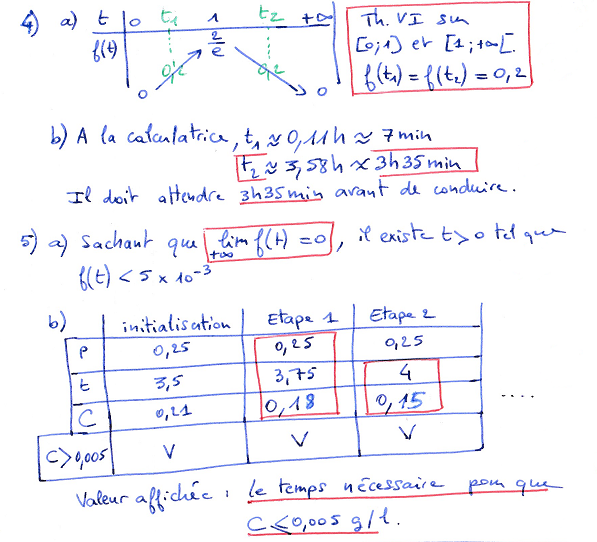 4) a) t 0 t₁ 1 t₂ +∞
f(t) 0 0,2 2/e 0,2 0
Th. VI sur
[0;1] et [1;+∞[.
f(t₁) = f(t₂) = 0,2
b) A la calculatrice, t₁ ≈ 0,11h ≈ 7min
t₂ ≈ 3,58h ≈ 3h35min
Il doit attendre 3h35min avant de conduire.
5) a) Sachant que lim f(t) = 0, il existe t > 0 tel que
+∞
f(t) < 5 × 10⁻³
b) initialisation Etape 1 Etape 2
P 0,25 0,25 0,25
t 3,5 3,75 4
C 0,21 0,18 0,15 ....
C>0,005 V V V
Valeur affichée : le temps nécessaire pour que
C ≤ 0,005 g/l.